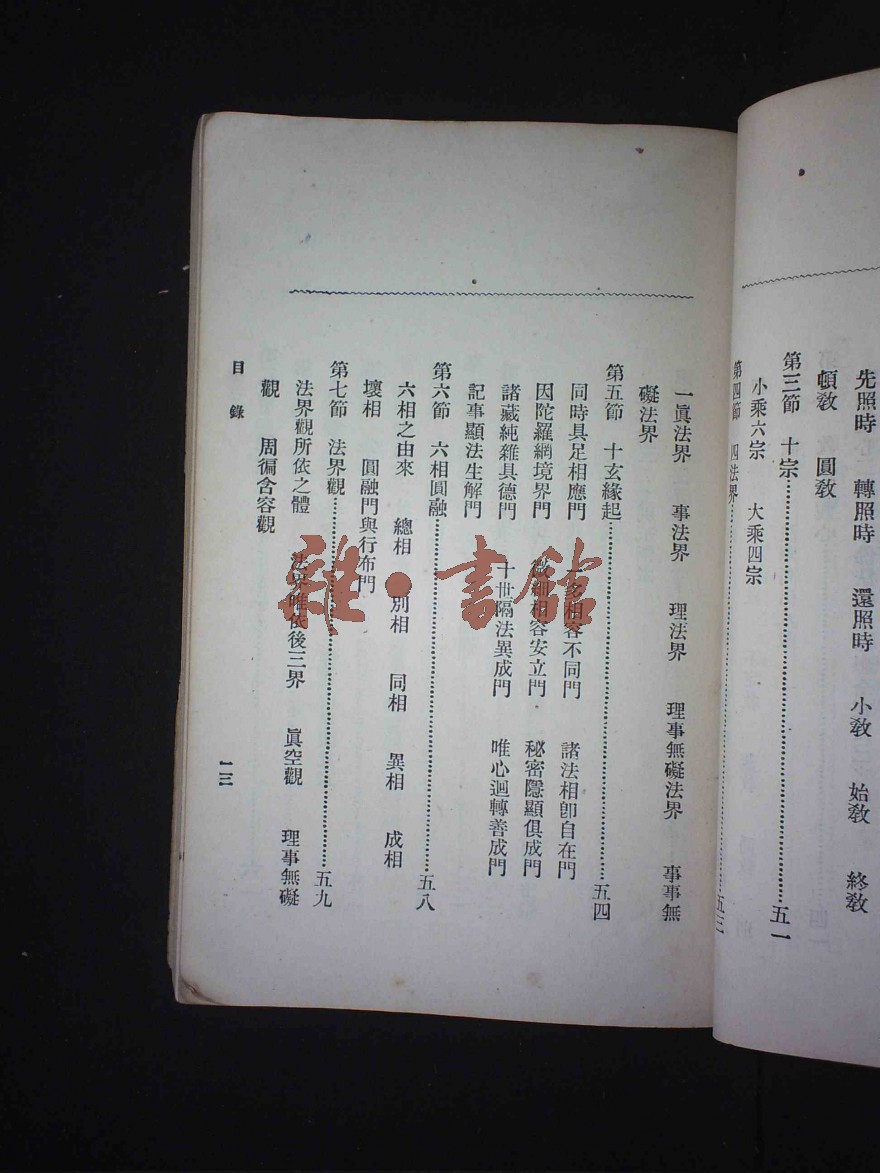 先照時 轉照時 還照時 小敎 始敎 終敎
頓敎 圓敎
第三節 十宗……五一
小乘六宗 大乘四宗
第四節 四法界……五三
一眞法界 事法界 理法界 理事無礙法界 事事無
礙法界
第五節 十玄緣起……五四
同時具足相應門 一多相容不同門 諸法相卽自在門
因陀羅網境界門 微細相容安立門 秘密隱顯俱成門
諸藏純雜具德門 十世隔法異成門 唯心迴轉善成門
記事顯法生解門
第六節 六相圓融……五八
六相之由來 總相 別相 同相 異相 成相
壞相 圓融門與行布門
第七節 法界觀……五九
法界觀所依之體 法界唯依後三界 眞空觀 理事無礙
觀 周徧含容觀
目錄
一三
雜·書館